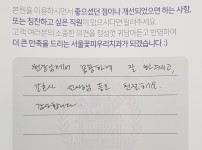 본원을 이용하시면서 좋으셨던 점이나 개선되었으면 하는 사항,
또는 칭찬하고 싶은 직원이 있으시다면 말해주세요.
고객 여러분의 소중한 의견을 정성껏 귀담아듣고 반영하여
더 큰 만족을 드리는 서울꽃피우리치과가 되겠습니다 :)
원장님께서 꼼꼼하게 잘 봐주시고,
간호사 선생님들도 친절해요
감사합니다